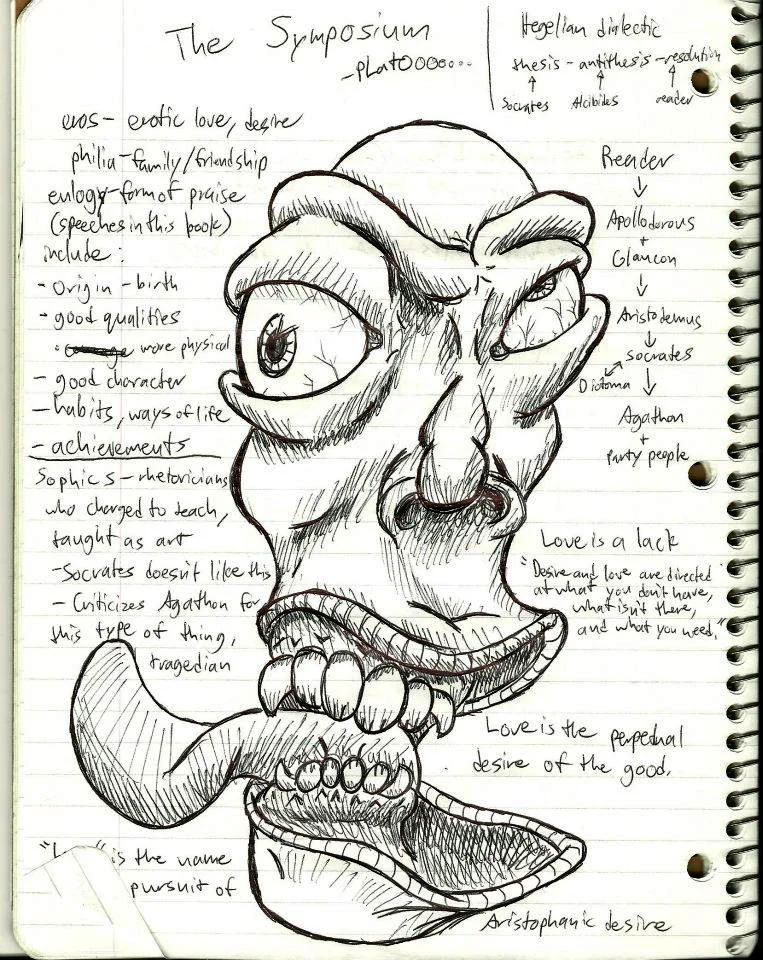 The Symposium
-PLATOOOOO...
Hegelian dialectic
thesis - antithesis - resolution
↑ ↑ ↑
Socrates Alcibides reader
eros - erotic love, desire
philia - family/friendship
eulogy - form of praise
(speeches in this book)
include:
- origin - birth
- good qualities
• more physical
- good character
- habits, ways of life
- achievements
Sophics - rhetoricians
who charged to teach,
taught as art
- Socrates doesn't like this
- Criticizes Agathon for
this type of thing,
tragedian
Reader
↓
Apollodorous
+
Glaucon
↓
Aristodemus
↓
Socrates
Diotoma ↓
Agathon
+
Party people
Love is a lack
"Desire and love are directed
at what you don't have,
what isn't there,
and what you need."
Love is the perpetual
desire of the good.
is the name
pursuit of
Aristophanic desire